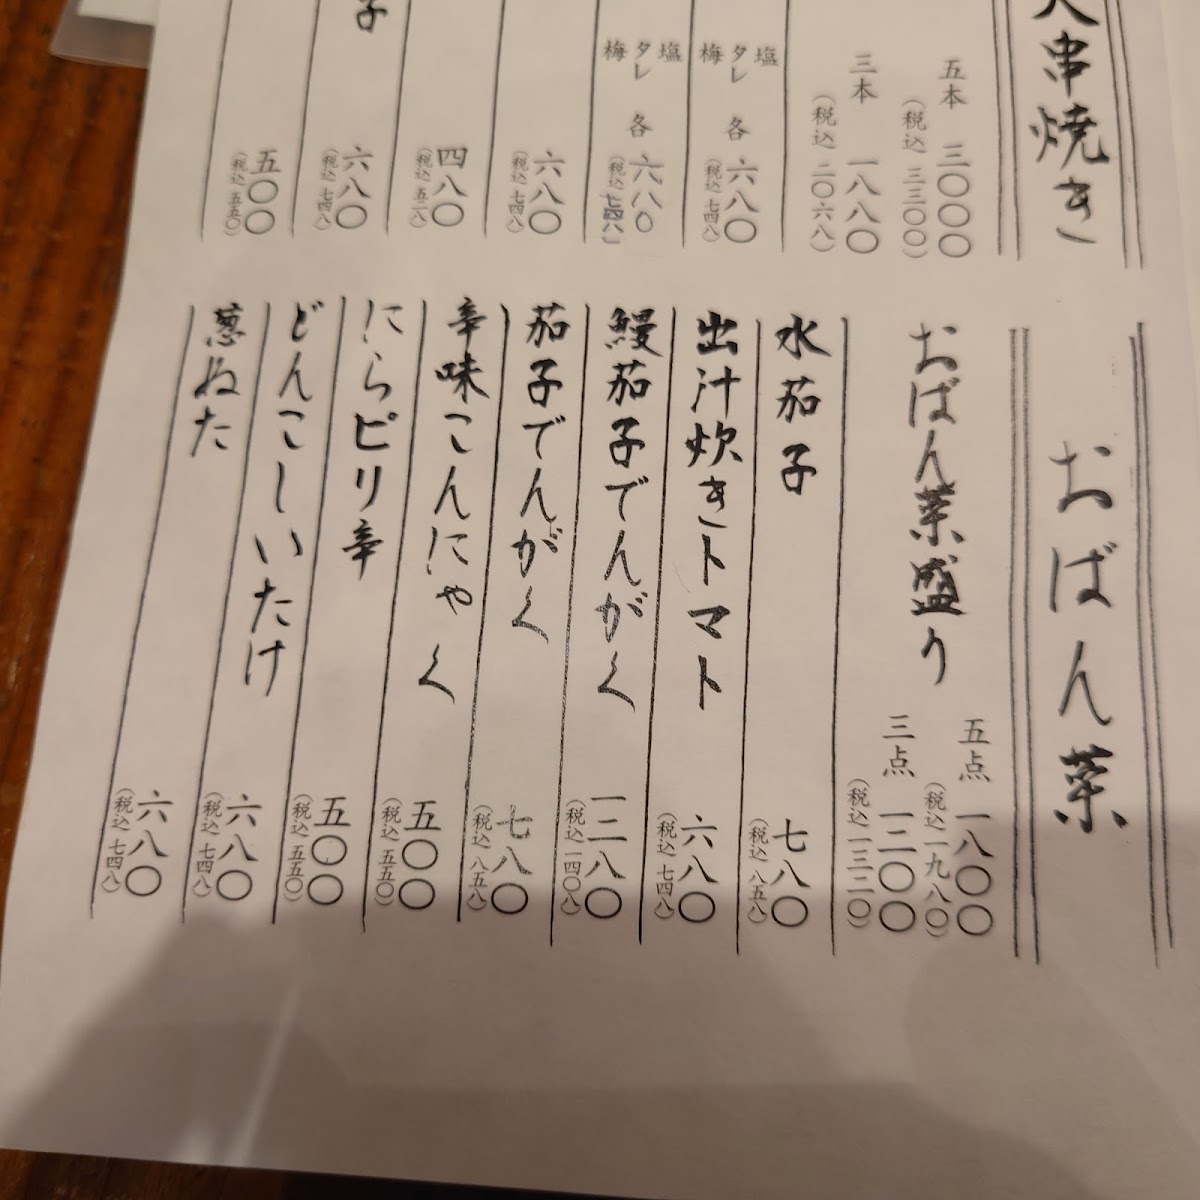 串焼き
五本 三〇〇〇
(税込 三三〇〇)
三本 一八八〇
(税込 二〇六八)
塩
タレ 各 六八〇
梅 (税込 七四八)
塩
タレ 各 六八〇
梅 (税込 七四八)
六八〇
(税込 七四八)
四八〇
(税込 五二八)
子 六八〇
(税込 七四八)
五〇〇
(税込 五五〇)
おばん菜
おばん菜盛り
五点 一八〇〇
(税込 一九八〇)
三点 一二〇〇
(税込 一三二〇)
水茄子 七八〇
(税込 八五八)
出汁炊きトマト 六八〇
(税込 七四八)
鰻茄子でんがく 一二八〇
(税込 一四〇八)
茄子でんがく 七八〇
(税込 八五八)
辛味こんにゃく 五〇〇
(税込 五五〇)
にらピリ辛 五〇〇
(税込 五五〇)
どんこしいたけ 六八〇
(税込 七四八)
葱ぬた 六八〇
(税込 七四八)